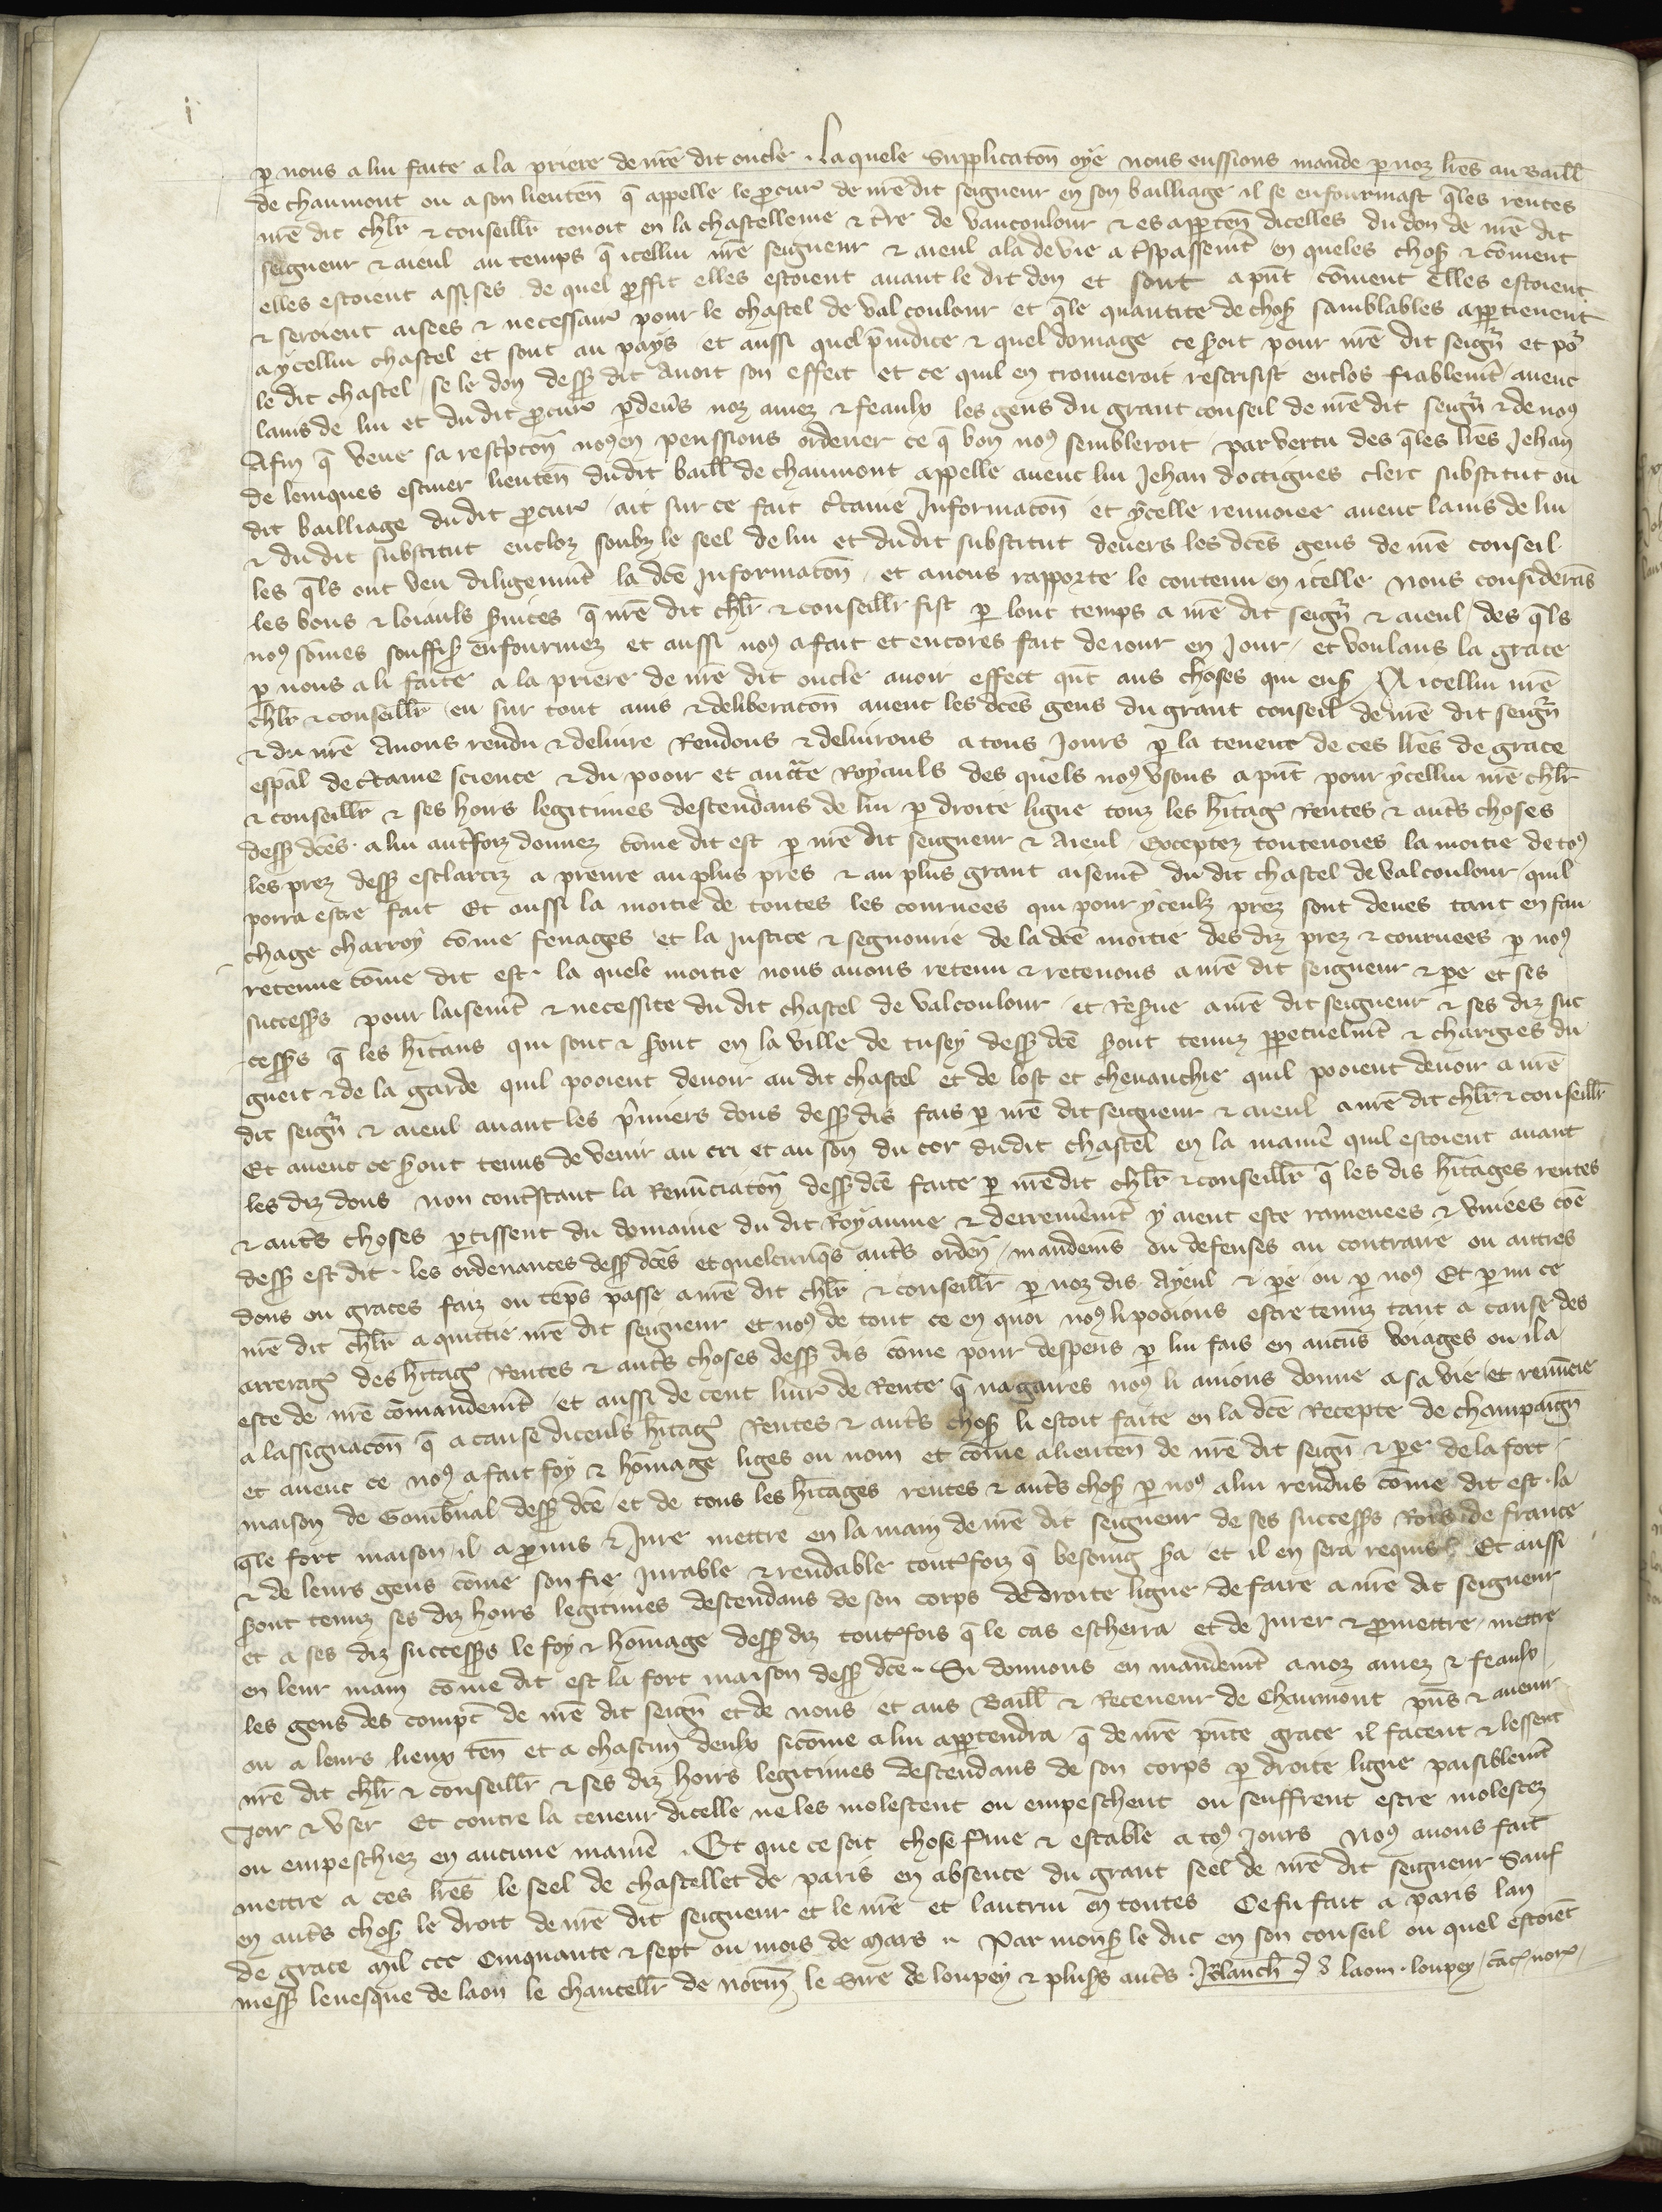 i
ꝑ nous a lui faite a la priere de nr̃e dit oncle . Laquele supplicatōn oye nous eussions mande ꝑ noz lr̃es au Baill̃
de chaumont ou a son lieuteñ q̃ appelle le ꝓcur̃ de nr̃e dit seigneur en son bailliage il se enfourmast q̃les rentes
nr̃e dit chlr̃ ⁊ conseillr̃ tenoit en la chastellenie ⁊ tr̃re de vaucoulour ⁊ es apꝑteñ dicelles du don de nr̃e dit
seigneur ⁊ aieul au temps q̃ icellui nr̃e seigneur ⁊ aieul ala de vie a tspassem̃t en queles choses ⁊ cōment
elles estoient assises de quel ꝓffit elles estoient auant le dit don et sont a pñt cōment elles estoient
⁊ seroient aisees ⁊ necessair̃ pour le chastel de valcoulour et q̃le quantite de choses samblables apꝑtienent
a ycellui chastel et sont au pays et aussi quel p̃iudice ⁊ quel domage ce s̃oit pour nr̃e dit seigñ et po᷑
le dit chastel se le don dess᷑ dit auoit son effect et ce quil en trouueroit rescrisist enclos fiablem̃t auec
lauis de lui et du dit ꝓcur̃ ꝑdeũs noz amez ⁊ feaulx les gens du grant conseil de nr̃e dit seigñ ⁊ de noꝯ
Afin q̃ veue sa resc̃ptōn noꝯ en peussions ordener ce q̃ bon noꝯ sembleroit par vertu des q̃les lr̃es Jehan
de leniques escuier lieuteñ dudit baill̃ de chaumont appelle auec lui Jehan doctignes clerc substitut ou
dit bailliage dudit ꝓcur̃ ait sur ce fait c̃taine Informatōn et ycelle renuoiee auec lauis de lui
⁊ dudit substitut encloz soubz le seel de lui et dudit substitut deuers les dc̃es gens de nr̃e conseil
les q̃ls ont veu diligenm̃t la dc̃e Informatōn et auons rapporte le contenu en icelle Nous considerās
les bons ⁊ loiauls s̃uices q̃ nr̃e dit chlr̃ ⁊ conseillr̃ fist ꝑ lonc temps a nr̃e dit seigñ ⁊ aieul des q̃ls
noꝯ sōmes souffis̃ enfourmez et aussi noꝯ a fait et encores fait de iour en Jour et voulans la grace
ꝑ nous a li faite a la priere de nr̃e dit oncle auoir effect qñt aus choses qui ens᷑ A icellui nr̃e
chlr̃ ⁊ conseillr̃ eu sur tout auis ⁊ deliberatōn auec les dc̃es gens du grant conseil de nr̃e dit seigñ
⁊ du nr̃e Auons rendu ⁊ deliure Rendons ⁊ deliurons a tous Jours ꝑ la teneur de ces lr̃es de grace
esp̃al de c̃taine science ⁊ du pooir et auct̃e Royauls des quels noꝯ vsons a pñt pour ycellui nr̃e chlr̃
⁊ conseillr̃ ⁊ ses hoirs legitimes descendans de lui ꝑ droite ligne touz les h̃itages Rentes ⁊ autr̃s choses
dess᷑ dc̃es a lui autrefoiz donnez cōme dit est ꝑ nr̃e dit seigneur ⁊ Aieul Exceptez toutesuoies la moitie de toꝯ
les prez dess᷑ esclarciz a prenre au plus pres ⁊ au plus grant aisem̃t du dit chastel de valcoulour quil
porra estre fait Et aussi la moitie de toutes les couruees qui pour yceulz prez sont deues tant en fau
chage charroy cōme fenages et la Justice ⁊ segnourie de la dc̃e moitie des diz prez ⁊ couruees ꝑ noꝯ
retenue cōme dit est . la quele moitie nous auons retenu ⁊ retenons a nr̃e dit seigneur ⁊ ꝑe et ses
success᷑s pour laisem̃t ⁊ necessite du dit chastel de valcoulour et Res̃ue a nr̃e dit seigneur ⁊ ses diz suc
cess᷑s q̃ les h̃itans qui sont ⁊ s̃ont en la ville de tusey dess᷑ dc̃e s̃ont tenuz ꝑpetuelm̃t ⁊ chargies du
gueit ⁊ de la garde quil pooient deuoir au dit chastel et de lost et cheuauchie quil pooient deuoir a nr̃e
dit seigñ ⁊ aieul auant les p̃miers dons dess᷑ dis fais ꝑ nr̃e dit seigneur ⁊ aieul a nr̃e dit chlr̃ ⁊ conseillr̃
Et auec ce s̃ont tenus de venir au cri et au son du cor dudit chastel en la manie᷑ quil estoient auant
les diz dons non contr̃stant la Renũciatōn dess᷑ dc̃e faite ꝑ nr̃e dit chlr̃ ⁊ conseillr̃ q̃ les dis h̃itages rentes
⁊ autr̃s choses ꝑtissent du domaine du dit Royaume ⁊ derrenierem̃t y aient este ramenees ⁊ vniees cōe
dess᷑ est dit . les ordenances dess᷑ dc̃es et quelcunq̃s autr̃s ordeñ mandem̃s ou defenses au contraire ou autres
dons ou graces faiz ou tẽps passe a nr̃e dit chlr̃ ⁊ conseillr̃ ꝑ noz dis Ayeul ⁊ ꝑe ou ꝑ noꝯ Et ꝑmi ce
nr̃e dit chlr̃ a quittie nr̃e dit seigneur et noꝯ de tout ce en quoi noꝯ li poions estre tenuz tant a cause des
arrerages des h̃itages Rentes ⁊ autr̃s choses dess᷑ dis cōme pour despens ꝑ lui fais en aucũs voiages ou il a
este de nr̃e cōmandem̃t et aussi de cent liur̃ de Rente q̃ nagaires noꝯ li auions donne a sa vie et renũcie
a lassignacōn q̃ a cause diceuls h̃itages Rentes ⁊ autr̃s choses li estoit faite en la dc̃e Recepte de champaigñ
et auec ce noꝯ a fait foy ⁊ hōmage liges ou nom et cōme a lieuteñ de nr̃e dit seigñ ⁊ ꝑe de la fort
maison de Gombual dess᷑ dc̃e et de tous les h̃itages rentes ⁊ autr̃s choses ꝑ noꝯ a lui rendus cōme dit est . la
q̃le fort maison il a ꝓmis ⁊ Jure mettre en la main de nr̃e dit seigneur de ses success᷑s Roys de france
⁊ de leurs gens cōme son fie Jurable ⁊ rendable toutesfoiz q̃ besoing s̃a et il en sera requis Et aussi
s̃ont tenuz ses diz hoirs legitimes descendans de son corps de droite ligne de faire a nr̃e dit seigneur
et a ses diz success᷑s le foy ⁊ hōmage dess᷑ diz toutesfois q̃ le cas escherra et de Jurer ⁊ ꝓmettre mettre
en leur main cōme dit est la fort maison dess᷑ dc̃e . Si donnons en mandem̃t a noz amez ⁊ feaulx
les gens des comptes de nr̃e dit seigñ et de nous et aus Baill̃ ⁊ Receueur de Chaumont pñs ⁊ auenir
ou a leurs lieux teñ et a chascun deulx sicōme a lui apꝑtendra q̃ de nr̃e pñte grace il facent ⁊ lessent
nr̃e dit chlr̃ ⁊ conseillr̃ ⁊ ses diz hoirs legitimes descendans de son corps ꝑ droite ligne paisiblem̃t
Joir ⁊ vser Et contre la teneur dicelle ne les molestent ou empeschent ou seuffrent estre molestez
ou empeschiez en aucune manie᷑ . Et que ce soit chose f̃me ⁊ estable a toꝯ Jours Noꝯ auons fait
mettre a ces lr̃es le seel de chastellet de paris en absence du grant seel de nr̃e dit seigneur Sauf
en autr̃s choses le droit de nr̃e dit seigneur et le nr̃e et lautrui en toutes Ce fu fait a paris lan
de grace mil ccc cinquante ⁊ sept ou mois de Mars . Par mons᷑ le duc en son conseil ou quel estoiẽt
mess᷑ leuesque de laon le chancellr̃ de norm̃ le Sire de loupey ⁊ plus᷑s autr̃s . Blanch̃ laon . loupey